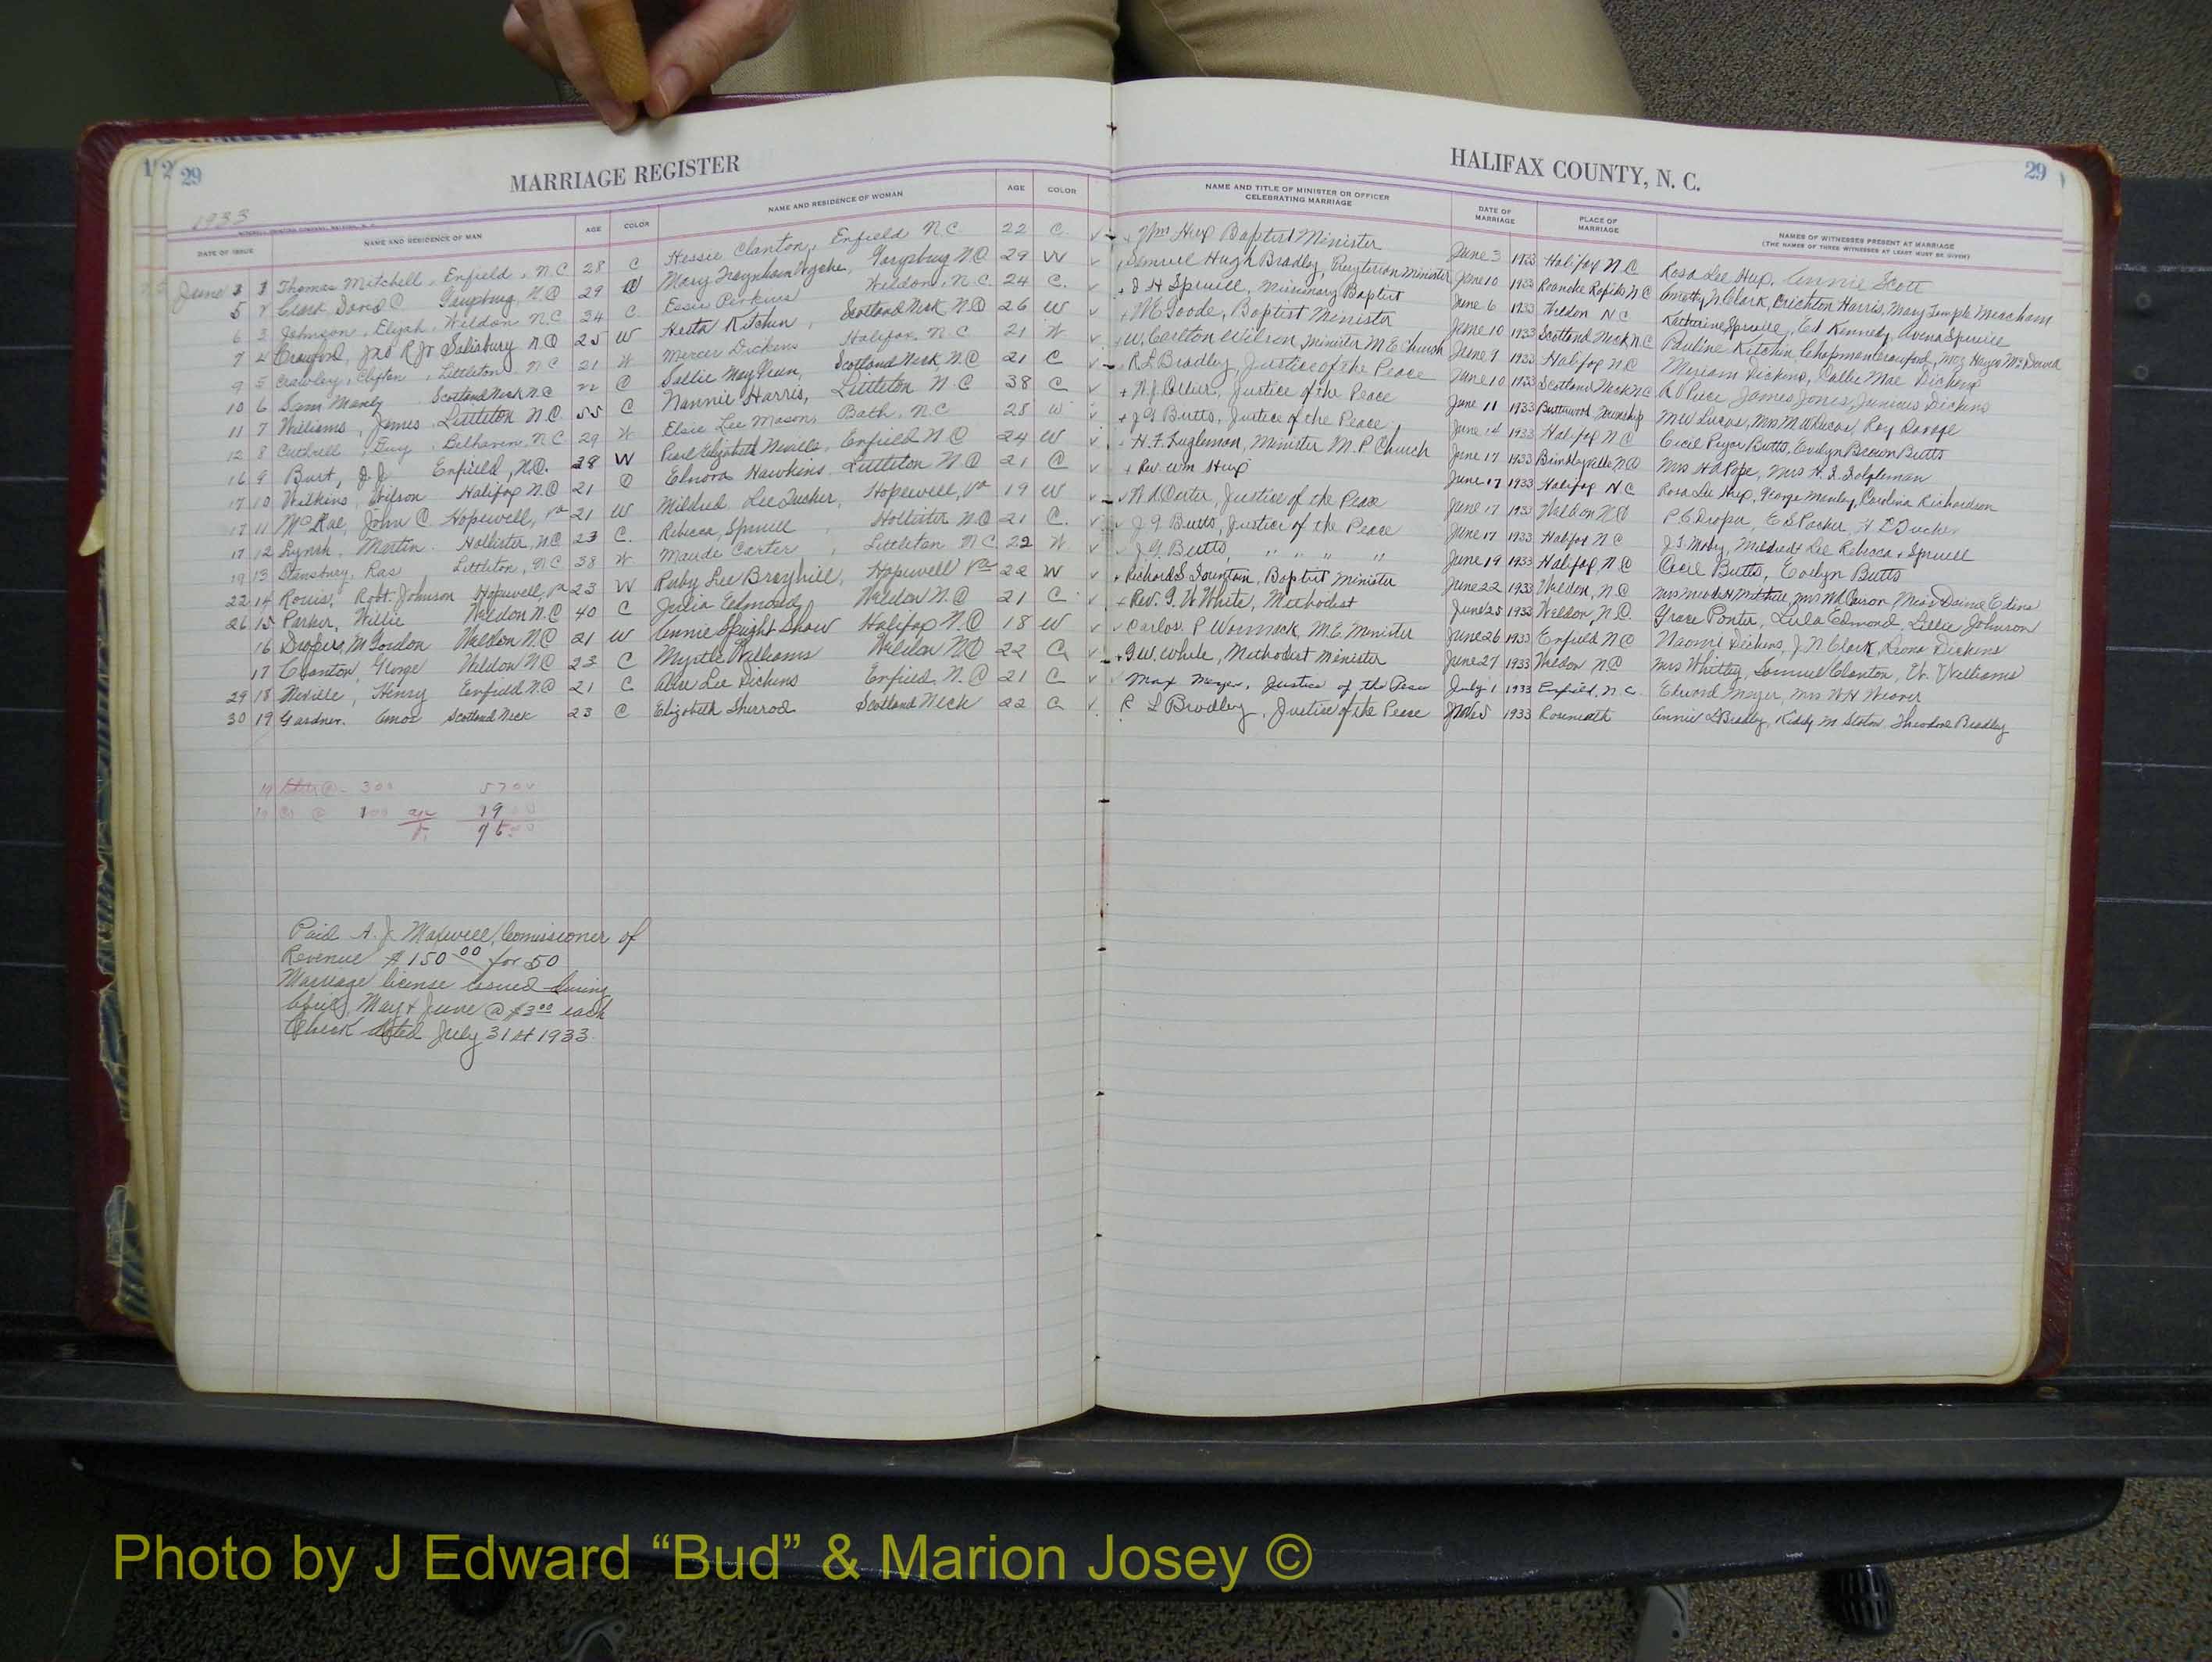 29
MARRIAGE REGISTER
HALIFAX COUNTY, N. C.
29
1933
DATE OF ISSUE NAME AND RESIDENCE OF MAN AGE COLOR NAME AND RESIDENCE OF WOMAN AGE COLOR NAME AND TITLE OF MINISTER OR OFFICER CELEBRATING MARRIAGE DATE OF MARRIAGE PLACE OF MARRIAGE NAMES OF WITNESSES PRESENT AT MARRIAGE
(THE NAMES OF THREE WITNESSES AT LEAST MUST BE GIVEN)
June 3 1 Thomas Mitchell, Enfield, N.C 28 C Hessie Clanton, Enfield N.C 22 C. Wm Hux Baptist Minister June 3 1933 Halifax N.C Rosa Lee Hux, Annie Scott
5 2 Clark David C Garysburg, N.C 29 W Mary Garysburg N.C. 29 W Samuel Hugh Bradley, Minister June 10 1933 Roanoke Rapids N.C Clark, Crichton Harris, Mary Temple Meacham
6 3 Johnson, Elijah, Weldon N.C 34 C Essie Perkins Weldon, N.C 24 C. Spruill, Missionary Baptist June 6 1933 Weldon N.C Katherine Spruill, Ed Kennedy, Spruill
7 4 Crawford, Jno R Jr Salisbury N.C 25 W Hesta Kitchin, Scotland Neck N.C 26 W Goode, Baptist Minister June 10 1933 Scotland Neck N.C Pauline Kitchin, Chapman Crawford,
9 5 Crawley, Clifton, Littleton N.C 21 W Mercer Dickens Halifax, N.C 21 W W. Carlton Wilson, Minister M.E Church June 9 1933 Halifax N.C Miriam Dickens, Callie Mae Dickens
10 6 Sam Manly Scotland Neck N.C C Sallie May Scotland Neck, N.C 21 C R L Bradley, Justice of the Peace June 10 1933 Scotland Neck N.C James Jones, Junious Dickens
11 7 Williams, James Littleton N.C 55 C Nannie Harris, Littleton N.C 38 C Justice of the Peace June 11 1933 Township M W Lucas, Mrs M W Lucas, Roy
12 8 Cuthrell, Guy, Belhaven, N.C 29 W Elsie Lee Masons Bath, N.C 28 W J.G Butts, Justice of the Peace June 14 1933 Halifax N.C Cecil Pryor Butts, Evelyn Brown Butts
16 9 Burt, J.J. Enfield, N.C. 28 W Pearl Elizabeth Neville, Enfield N.C 24 W Minister M.P Church June 17 1933 Brinkleyville N.C Mrs H A Pope,
17 10 Wilkins, Wilson Halifax N.C 21 C Elnora Hawkins Littleton N.C 21 C Rev. Wm Hux June 17 1933 Halifax N.C Rosa Lee Hux, George Manley, Carolina Richardson
17 11 McRae, John C Hopewell, Va 21 W Mildred Lee Tucker, Hopewell, Va 19 W Carter, Justice of the Peace June 17 1933 Weldon N.C P C Draper, E S Parker,
17 12 Lynch, Martin Hollister, N.C 23 C. Rebecca, Spruell Hollister N.C 21 C. J G Butts, Justice of the Peace June 17 1933 Halifax N.C Rebecca Spruell
19 13 Stansbury, Ras Littleton, N.C 38 W Maude Carter, Littleton N.C 22 W J.G. Butts, " " " " June 19 1933 Halifax, N.C Cecil Butts, Evelyn Butts
22 14 Robt. Johnson Hopewell, Va 23 W Ruby Lee Broyhill, Hopewell Va 22 W Richard S Fountain, Baptist Minister June 22 1933 Weldon, N.C
26 15 Parker, Willie Weldon N.C 40 C Julia Edmond, Weldon N.C 21 C Rev. G. W White, Methodist June 25 1933 Weldon, N.C. Grace Ponter, Lula Edmond, Lillie Johnson
16 Draper, M Gordon Weldon N.C 21 W Annie Spight Shaw Halifax N.C 18 W Carlos P Womack, M.E. Minister June 26 1933 Enfield N.C Naomi Dickens, J. N. Clark, Leona Dickens
17 Clanton, George Weldon N.C 23 C Myrtle Williams Weldon N.C 22 C G.W. White, Methodist Minister June 27 1933 Weldon N.C Mrs Whitley, Samuel Clanton, W. Williams
29 18 Neville, Henry Enfield N.C 21 C Alice Lee Dickens Enfield, N.C 21 C Max Meyer, Justice of the Peace July 1 1933 Enfield, N.C Edward Meyer, Mrs W H Weaver
30 19 Gardner, Amos Scotland Neck 23 C Elizabeth Sherrod Scotland Neck 22 C R L Bradley, Justice of the Peace 1933 Roseneath Annie L Bradley, Kiddy M Staton, Theodore Bradley
19 @ 300 5700
19 @ 100 19 00
76 00
Paid A. J. Maxwell, Comissioner of
Revenue $150 00 for 50
Marriage license issued during
April, May & June @ $3 00 each
Check dated July 31st 1933
Photo by J Edward “Bud” & Marion Josey ©